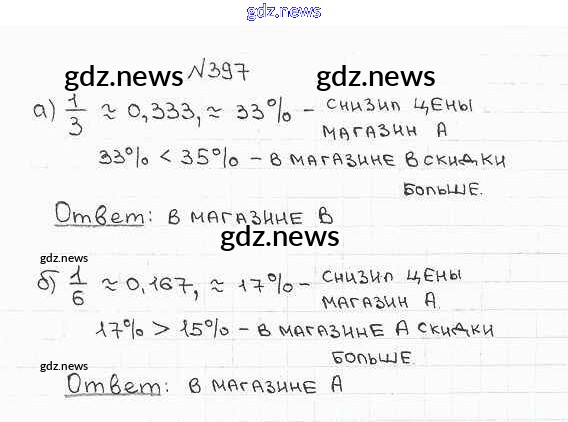 gdz.news
№397
gdz.news gdz.news
а) 1/3 ≈ 0,333, ≈ 33% – снизил цены
магазин А
33% < 35% – в магазине В скидки
больше.
Ответ: в магазине В
gdz.news
gdz.news
б) 1/6 ≈ 0,167, ≈ 17% – снизил цены
магазин А.
17% > 15% – в магазине А скидки
больше.
gdz.news
Ответ: в магазине А